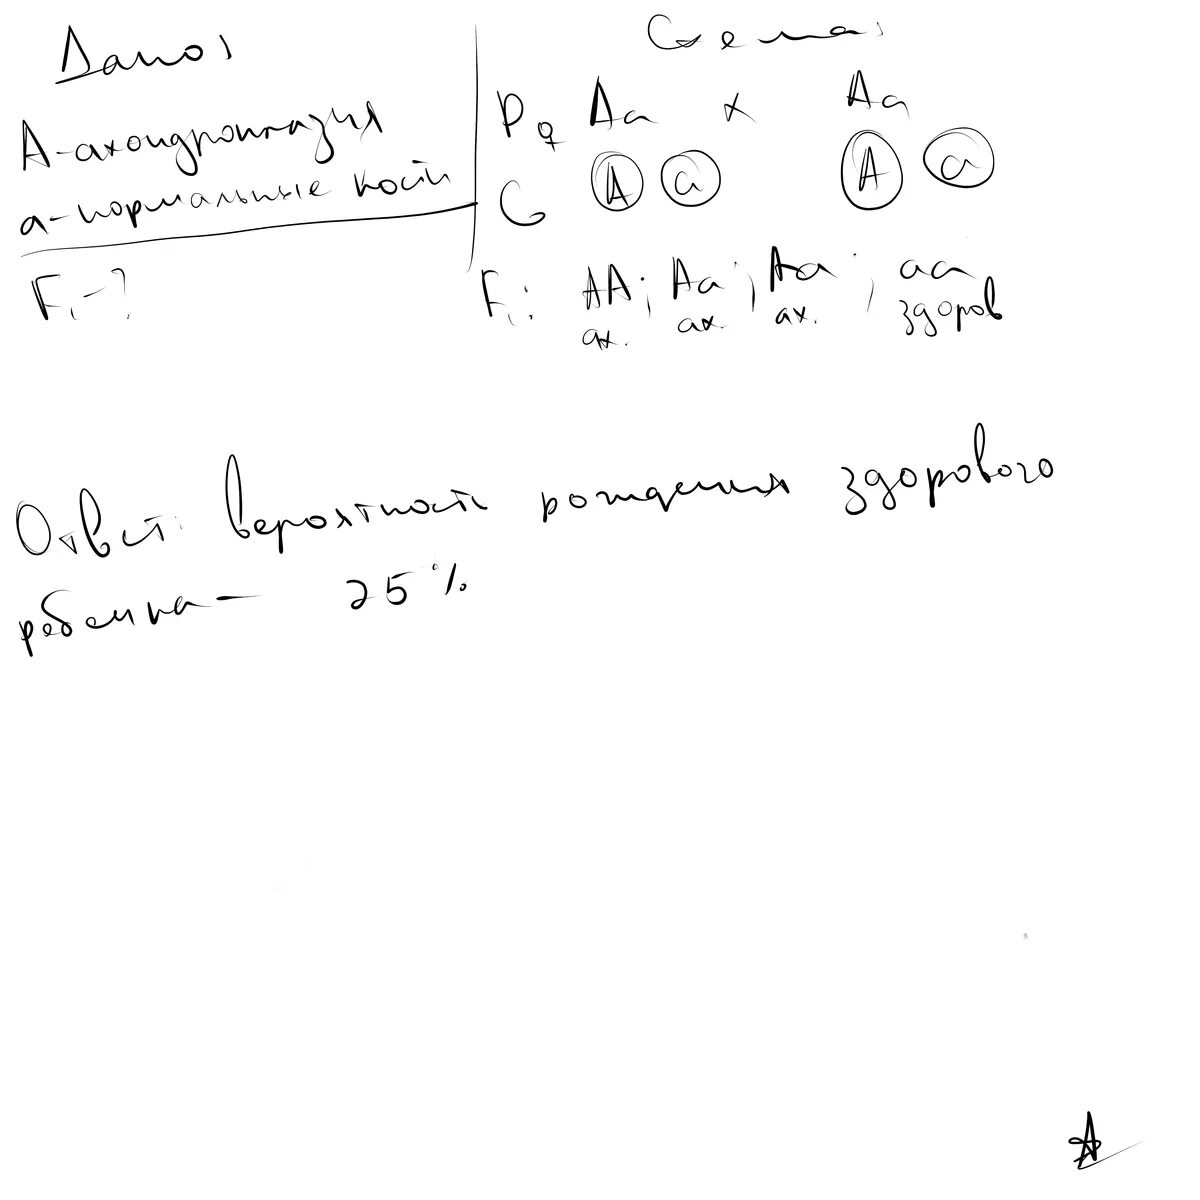 Дано:
А-ахондроплазия
а-нормальные кости
F₁-?
Схема:
P ♀ Aa x Aa
G A a A a
F₁: AA; Aa; Aa; aa
ах. ах. ах. здоров
Ответ: вероятность рождения здорового
ребенка- 25%